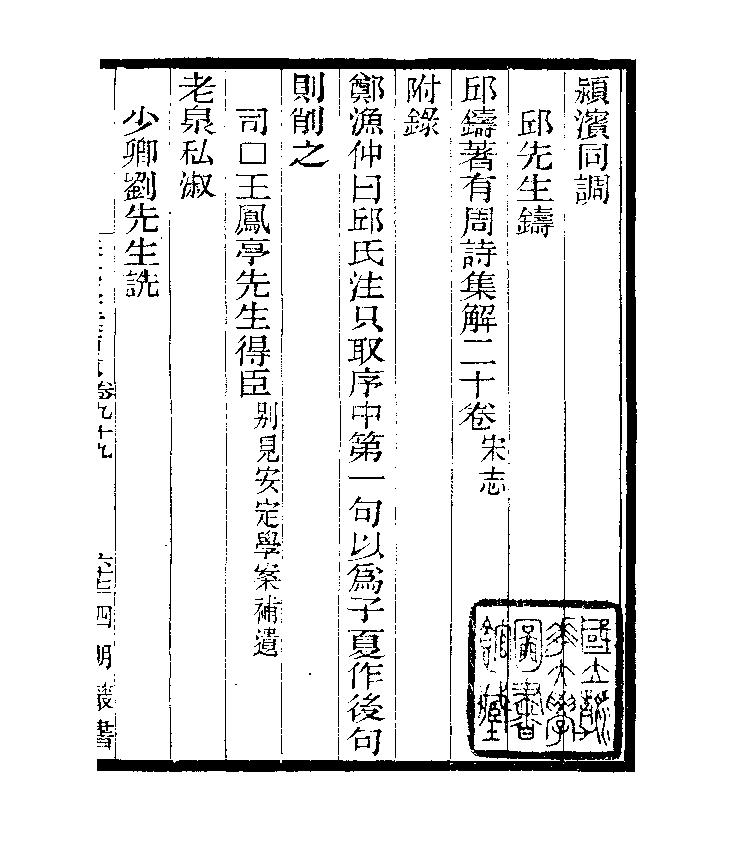 潁濱同調
邱先生鑄
邱鑄著有周詩集解二十卷宋志
附錄
鄭漁仲曰邱氏注只取序中第一句以爲子夏作後句
則削之
司口王鳳亭先生得臣别見安定學案補遺
老泉私淑
少卿劉先生詵
卷九十九
四明叢書